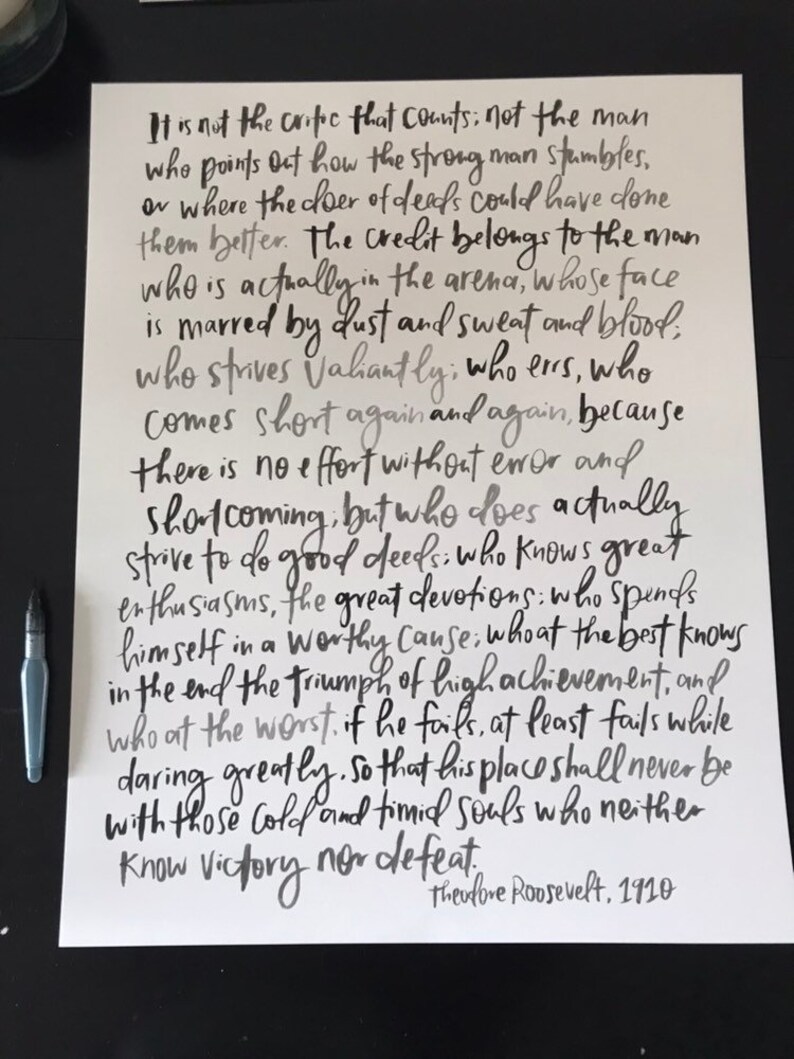 It is not the critic that counts; not the man
who points out how the strong man stumbles,
or where the doer of deeds could have done
them better. The credit belongs to the man
who is actually in the arena, whose face
is marred by dust and sweat and blood;
who strives valiantly; who errs, who
comes short again and again, because
there is no effort without error and
shortcoming; but who does actually
strive to do good deeds; who knows great
enthusiasms, the great devotions; who spends
himself in a worthy cause; who at the best knows
in the end the triumph of high achievement, and
who at the worst, if he fails, at least fails while
daring greatly, so that his place shall never be
with those cold and timid souls who neither
know victory nor defeat.
Theodore Roosevelt, 1910